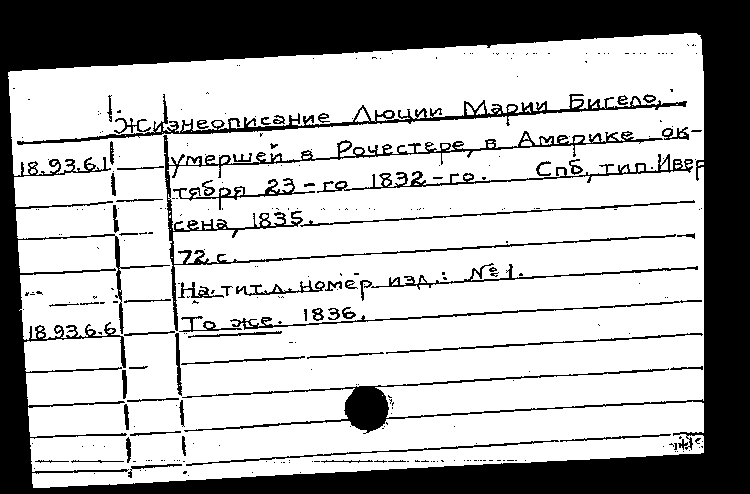 Жизнеописание Люции Марии Бигело,
18.93.6.1 умершей в Рочестере, в Америке ок-
тября 23-го 1832-го. Спб, тип. Ивер
сена, 1835.
72 с.
На тит.л. номер изд.: №1.
18.93.6.6 То же. 1836.